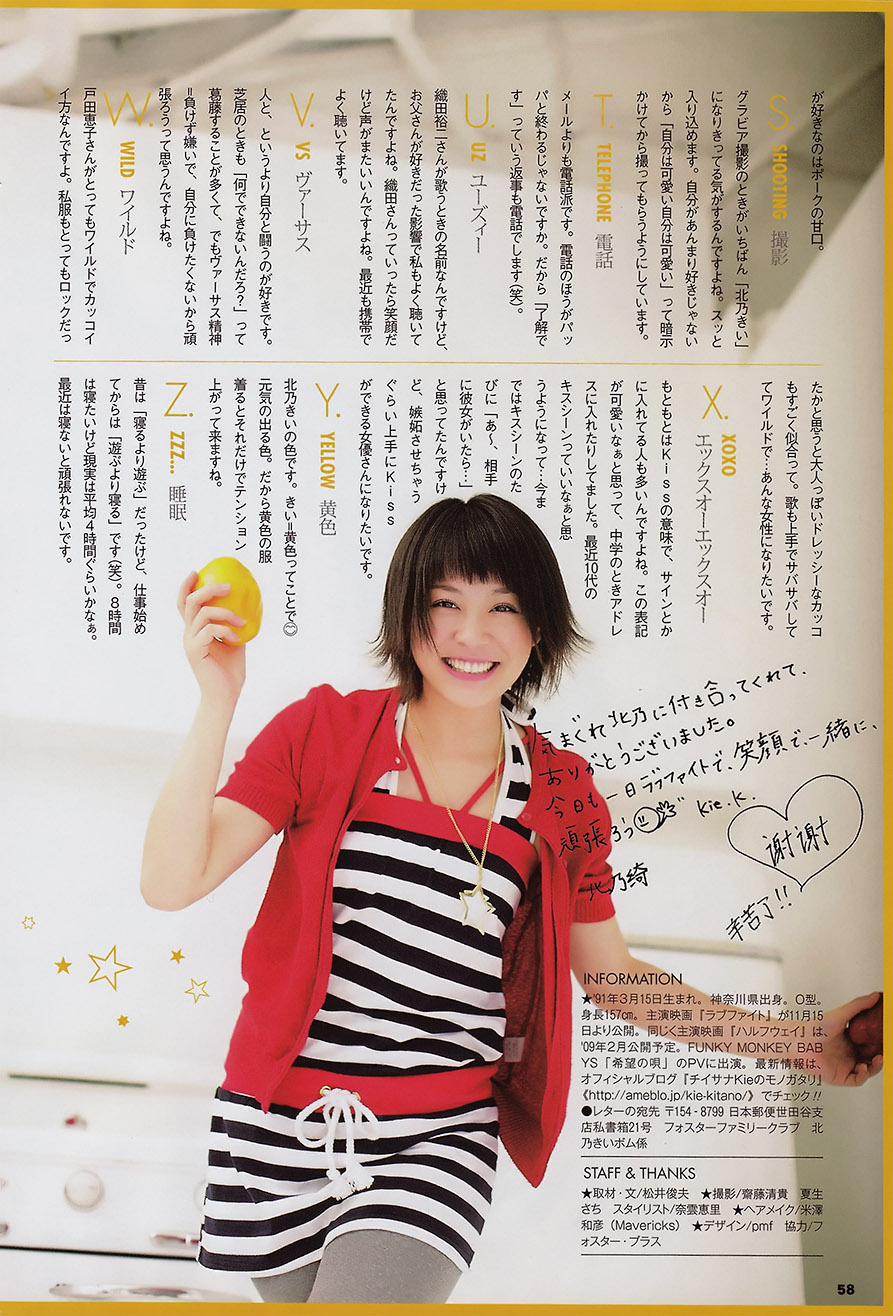 が好きなのはポークの甘口。
S. SHOOTING 撮影
グラビア撮影のときがいちばん「北乃きい」
になりきってる気がするんですよね。スッと
入り込めます。自分があんまり好きじゃない
から「自分は可愛い自分は可愛い」って暗示
かけてから撮ってもらうようにしています。
T. TELEPHONE 電話
メールよりも電話派です。電話のほうがパッ
パと終わるじゃないですか。だから「了解で
す」っていう返事も電話でします(笑)。
U. UZ ユーズィー
織田裕二さんが歌うときの名前なんですけど、
お父さんが好きだった影響で私もよく聴いて
たんですよね。織田さんっていったら笑顔だ
けど声がまたいいんですよね。最近も携帯で
よく聴いてます。
V. VS ヴァーサス
人と、というより自分と闘うのが好きです。
芝居のときも「何でできないんだろ?」って
葛藤することが多くて、でもヴァーサス精神
=負けず嫌いで、自分に負けたくないから頑
張ろうって思うんですよね。
W. WILD ワイルド
戸田恵子さんがとってもワイルドでカッコイ
イ方なんですよ。私服もとってもロックだっ
たかと思うと大人っぽいドレッシーなカッコ
もすごく似合って。歌も上手でサバサバして
てワイルドで…あんな女性になりたいです。
X. XOXO エックスオーエックスオー
もともとはKissの意味で、サインとか
に入れてる人も多いんですよね。この表記
が可愛いなぁと思って、中学のときアドレ
スに入れたりしてました。最近10代の
キスシーンっていいなぁと思
うようになって…今ま
ではキスシーンのた
びに「あ〜、相手
に彼女がいたら…」
と思ってたんですけ
ど、嫉妬させちゃう
ぐらい上手にKiss
ができる女優さんになりたいです。
Y. YELLOW 黄色
北乃きいの色です。きい=黄色ってことで☺
元気の出る色。だから黄色の服
着るとそれだけでテンション
上がって来ますね。
Z. ZZZ.... 睡眠
昔は「寝るより遊ぶ」だったけど、仕事始め
てからは「遊ぶより寝る」です(笑)。8時間
は寝たいけど現実は平均4時間ぐらいかなぁ。
最近は寝ないと頑張れないです。
気まぐれ北乃に付き合ってくれて、
ありがとうございました。
今日も一日ラブファイトで、笑顔で、一緒に、
頑張ろう Kie.K.
北乃綺
谢谢
辛苦了!!
INFORMATION
★'91年3月15日生まれ。神奈川県出身。O型。
身長157cm。主演映画『ラブファイト』が11月15
日より公開。同じく主演映画『ハルフウェイ』は、
'09年2月公開予定。FUNKY MONKEY BAB
YS「希望の唄」のPVに出演。最新情報は、
オフィシャルブログ『チイサナKieのモノガタリ』
《http://ameblo.jp/kie-kitano/》でチェック!!
●レターの宛先 〒154-8799 日本郵便世田谷支
店私書箱21号 フォスターファミリークラブ 北
乃きいボム係
STAFF & THANKS
★取材・文/松井俊夫 ★撮影/齋藤清貴 夏生
さち スタイリスト/奈雲恵里 ★ヘアメイク/米澤
和彦(Mavericks) ★デザイン/pmf 協力/フ
ォスター・プラス
58